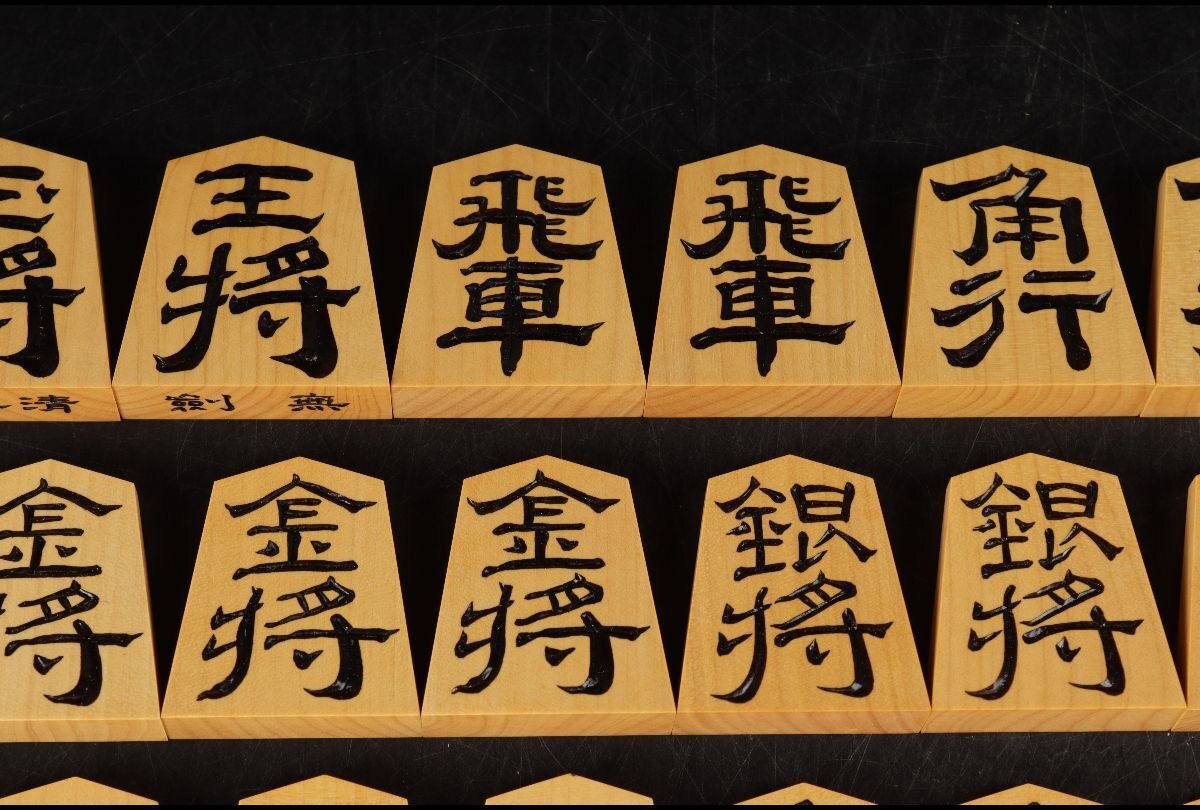 玉将
王将
飛車
飛車
角行
清
無劍
金将
金将
金将
銀将
銀将